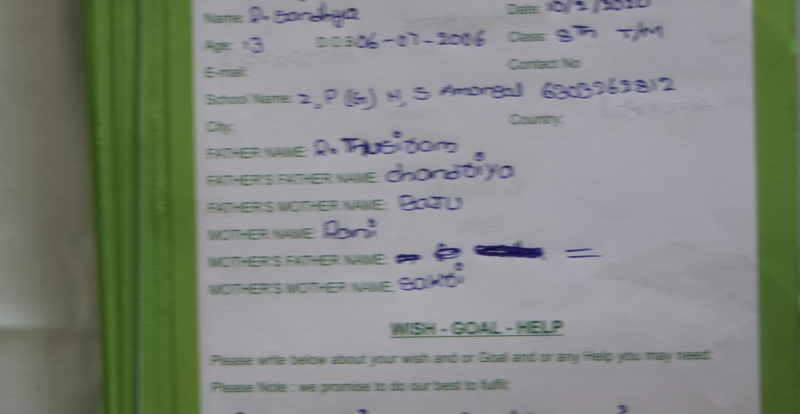 Name: R. Sandhya Date: 10/2/2020
Age: 13 D.O.B 06-07-2006 Class: 8th T/M
E-mail: Contact No
School Name: Z, P (G) H, S Amangal 6303263812
City: Country:
FATHER NAME: R.
FATHER'S FATHER NAME:
FATHER'S MOTHER NAME:
MOTHER NAME: Rani
MOTHER'S FATHER NAME: =
MOTHER'S MOTHER NAME:
WISH - GOAL - HELP
Please write below about your wish and or Goal and or any Help you may need:
Please Note : we promise to do our best to fulfil: